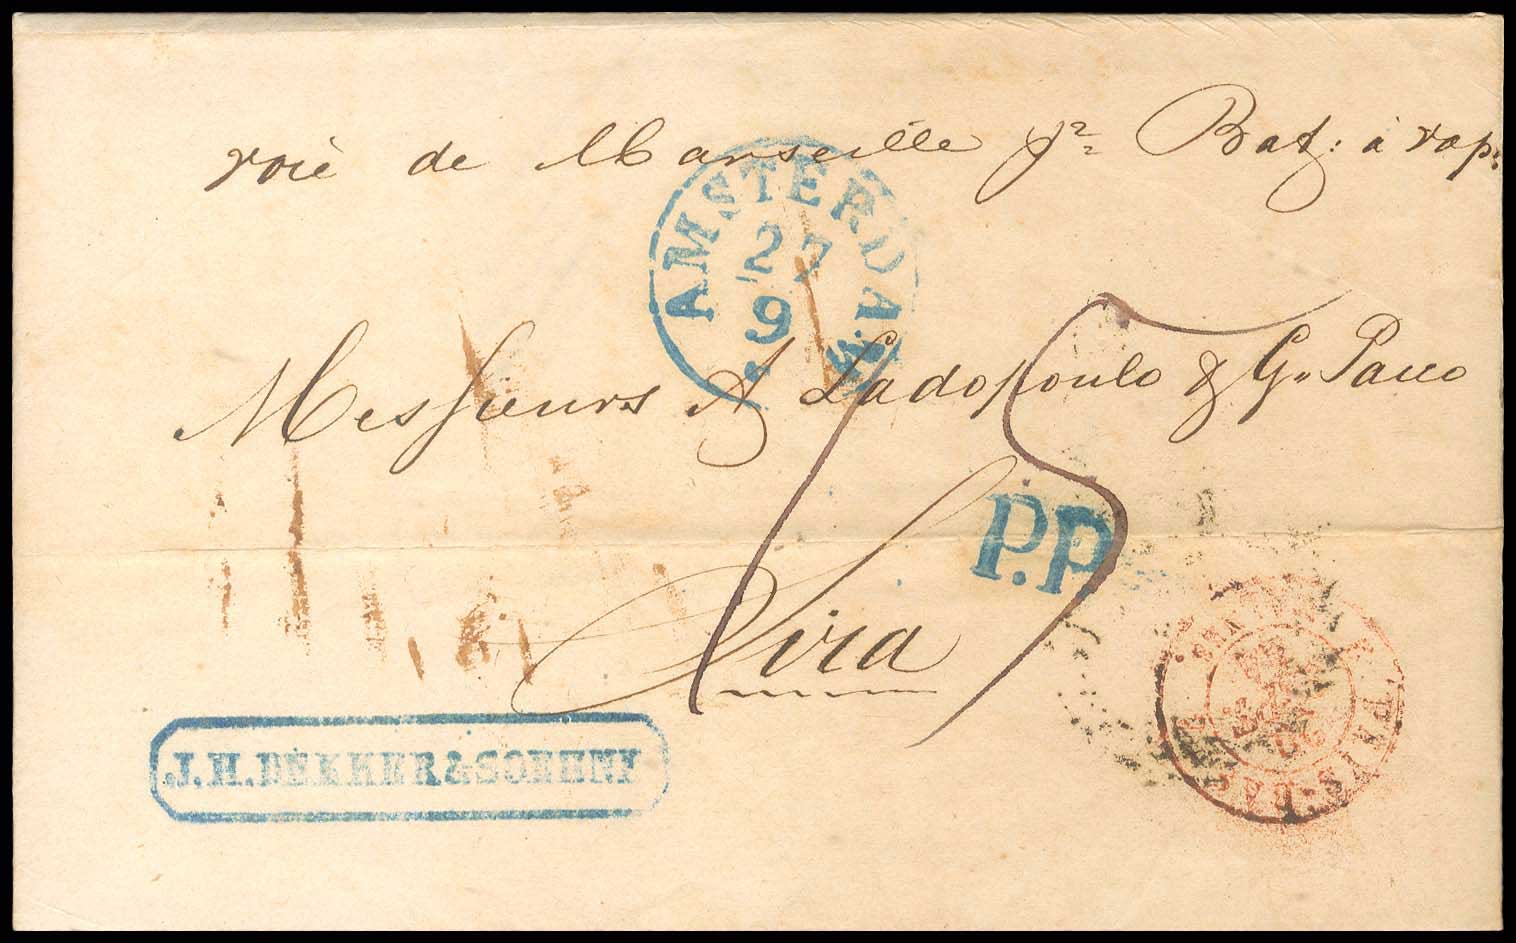 voie de Marseille pr Bat: à vap:
AMSTERDAM
27
9
Messieurs A Ladopoulo & G. Pacco
P.P.
Sira
J.H. DEKKER & SOEHNE
PAYS-BAS